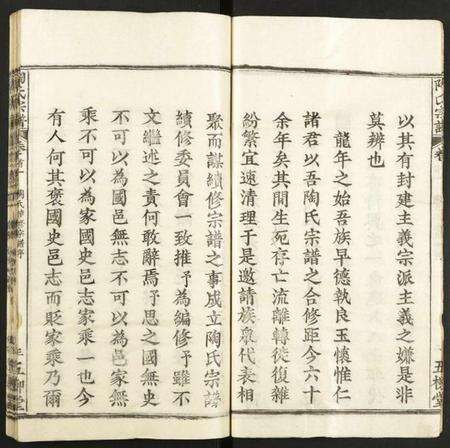 陶氏宗譜
五柳堂
以其有封建主義宗派主義之嫌是非
莫辨也
龍年之始吾族早德執良玉懷惟仁
諸君以吾陶氏宗譜之合修距今六十
余年矣其間生死存亡流離轉徙復雜
紛繁宜速清理于是邀請族眾代表相
聚而謀續修宗譜之事成立陶氏宗譜
續修委員會一致推予為編修予雖不
文繼述之責何敢辭焉予思之國無史
不可以為國邑無志不可以為邑家無
乘不可以為家國史邑志家乘一也今
有人何其褒國史邑志而貶家乘乃爾
陶氏宗譜